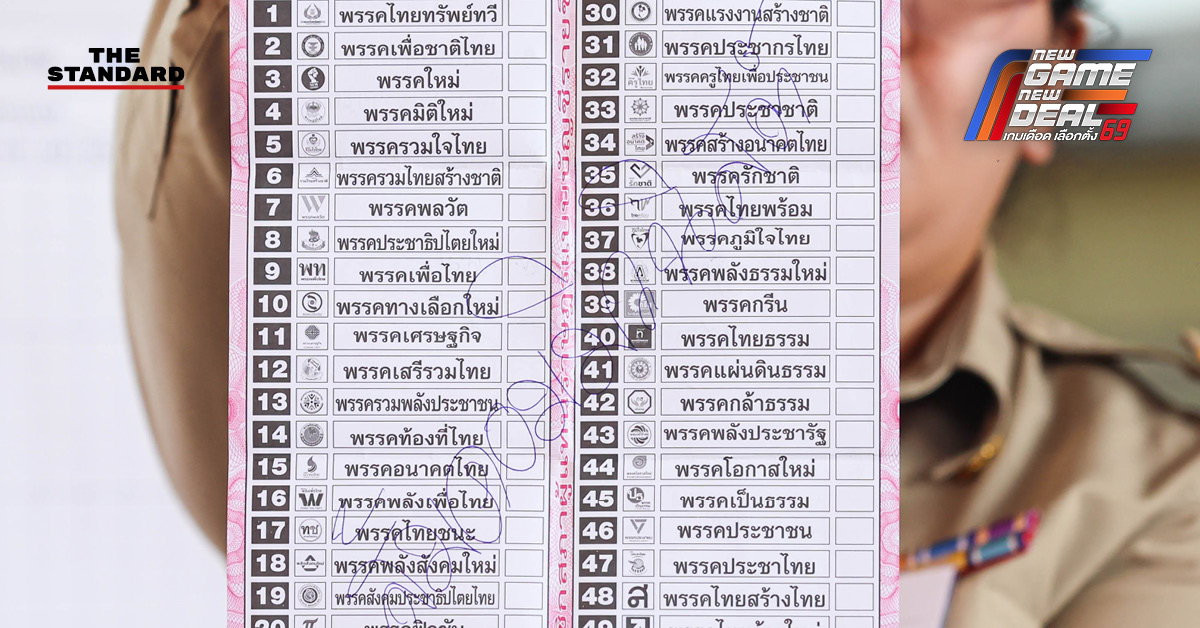 THE
STANDARD
NEW
GAME
NEW
DEAL
เกมเดือด เลือกตั้ง 69
1 พรรคไทยทรัพย์ทวี
2 พรรคเพื่อชาติไทย
3 พรรคใหม่
4 พรรคมิติใหม่
5 พรรครวมใจไทย
6 พรรครวมไทยสร้างชาติ
7 พรรคพลวัต
8 พรรคประชาธิปไตยใหม่
9 พท พรรคเพื่อไทย
10 พรรคทางเลือกใหม่
11 พรรคเศรษฐกิจ
12 พรรคเสรีรวมไทย
13 พรรครวมพลังประชาชน
14 พรรคท้องที่ไทย
15 พรรคอนาคตไทย
16 พรรคพลังเพื่อไทย
17 ทช พรรคไทยชนะ
18 พรรคพลังสังคมใหม่
19 พรรคสังคมประชาธิปไตยไทย
20 พรรคฟิวชัน
30 พรรคแรงงานสร้างชาติ
31 พรรคประชากรไทย
32 ครูไทย พรรคครูไทยเพื่อประชาชน
33 พรรคประชาชาติ
34 สร้างอนาคตไทย พรรคสร้างอนาคตไทย
35 รักชาติ พรรครักชาติ
36 พรรคไทยพร้อม
37 พรรคภูมิใจไทย
38 พรรคพลังธรรมใหม่
39 พรรคกรีน
40 พรรคไทยธรรม
41 พรรคแผ่นดินธรรม
42 พรรคกล้าธรรม
43 พรรคพลังประชารัฐ
44 พรรคโอกาสใหม่
45 พรรคเป็นธรรม
46 พรรคประชาชน
47 พรรคประชาไทย
48 ส พรรคไทยสร้างไทย
49